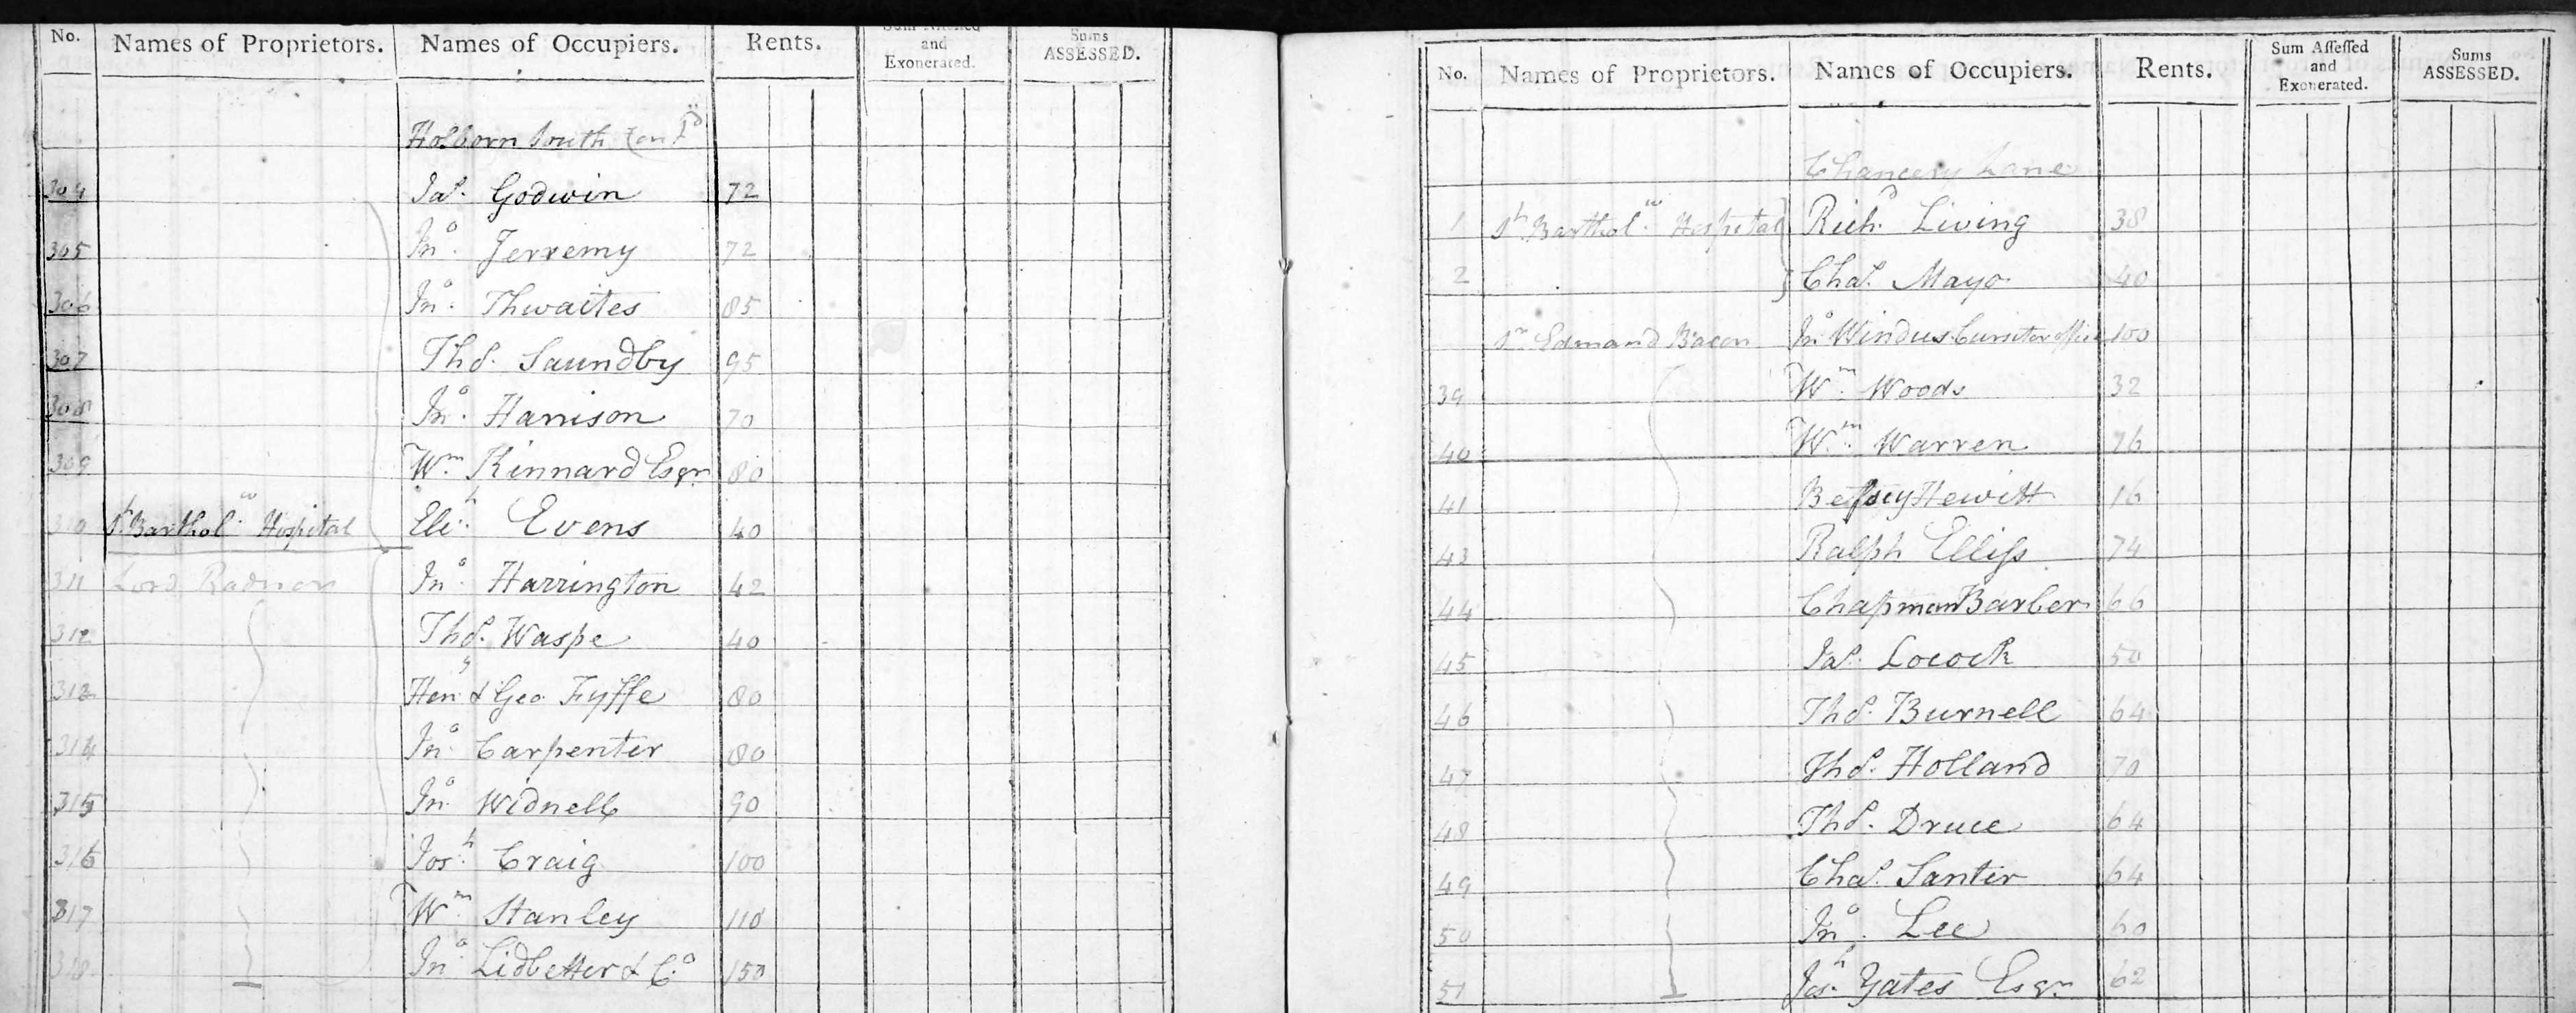 No. Names of Proprietors. Names of Occupiers. Rents. Sum Assessed and Exonerated. Sums ASSESSED.
Holborn South Cont.d
304 Jas. Godwin 72
305 Jno. Jerremy 72
306 Jno. Thwaites 85
307 Thos. Saundby 95
308 Jno. Harrison 70
309 Wm. Kinnard Esqr. 80
310 St. Barthol.w Hospital Eliz.h Evens 40
311 Lord Radnor Jno. Harrington 42
312 Thos. Waspe 40
313 Hen.y & Geo. Fyffe 80
314 Jno. Carpenter 80
315 Jno. Widnell 90
316 Jos.h Craig 100
317 Wm. Stanley 110
318 Jno. Lidbetter & Co. 150
No. Names of Proprietors. Names of Occupiers. Rents. Sum Assessed and Exonerated. Sums ASSESSED.
Chancery Lane
1 St. Barthol.w Hospital Rich.d Living 38
2 Chas. Mayo 40
Sr. Edmand Bacon Jno. Windus Cursitor office 100
39 Wm. Woods 32
40 Wm. Warren 76
41 Betsey Hewitt 16
43 Ralph Elliss 74
44 Chapman Barber 66
45 Jas. Locock 50
46 Thos. Burnell 64
47 Thos. Holland 70
48 Thos. Druce 64
49 Chas. Santer 64
50 Jno. Lee 60
51 Jos.h Yates Esqr. 62